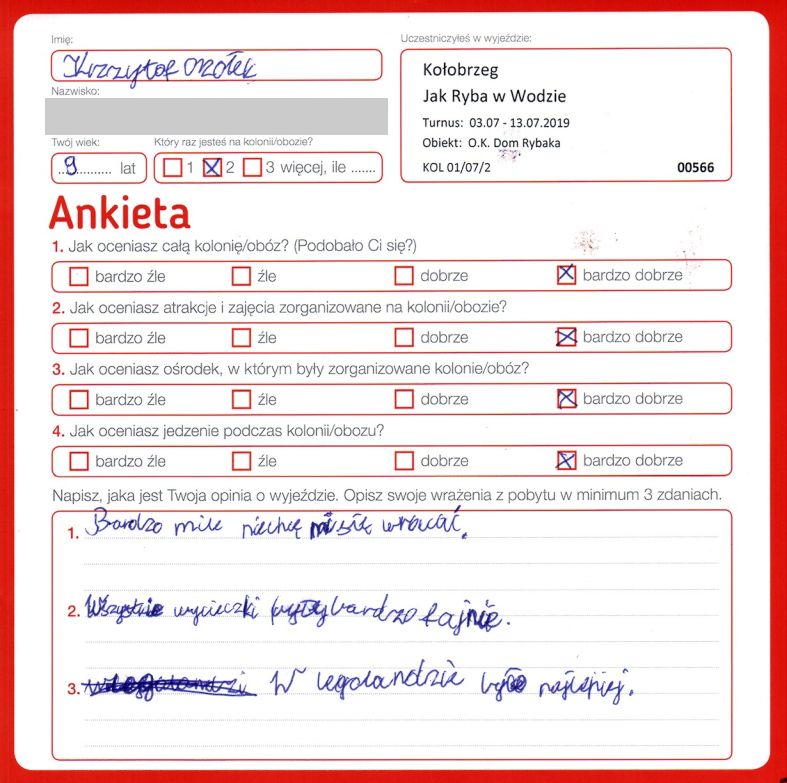 Imię:
Krzysztof Orołek
Nazwisko:
Twój wiek:
Który raz jesteś na kolonii/obozie?
..9.......... lat
1 2 3 więcej, ile .......
Uczestniczyłeś w wyjeździe:
Kołobrzeg
Jak Ryba w Wodzie
Turnus: 03.07 - 13.07.2019
Obiekt: O.K. Dom Rybaka
KOL 01/07/2 00566
Ankieta
1. Jak oceniasz całą kolonię/obóz? (Podobało Ci się?)
bardzo źle źle dobrze bardzo dobrze
2. Jak oceniasz atrakcje i zajęcia zorganizowane na kolonii/obozie?
bardzo źle źle dobrze bardzo dobrze
3. Jak oceniasz ośrodek, w którym były zorganizowane kolonie/obóz?
bardzo źle źle dobrze bardzo dobrze
4. Jak oceniasz jedzenie podczas kolonii/obozu?
bardzo źle źle dobrze bardzo dobrze
Napisz, jaka jest Twoja opinia o wyjeździe. Opisz swoje wrażenia z pobytu w minimum 3 zdaniach.
1. Bardzo mile niechcę mi się wracać.
2. Wszystkie wycieczki były bardzo fajnie.
3. W legolandzie było najlepiej.